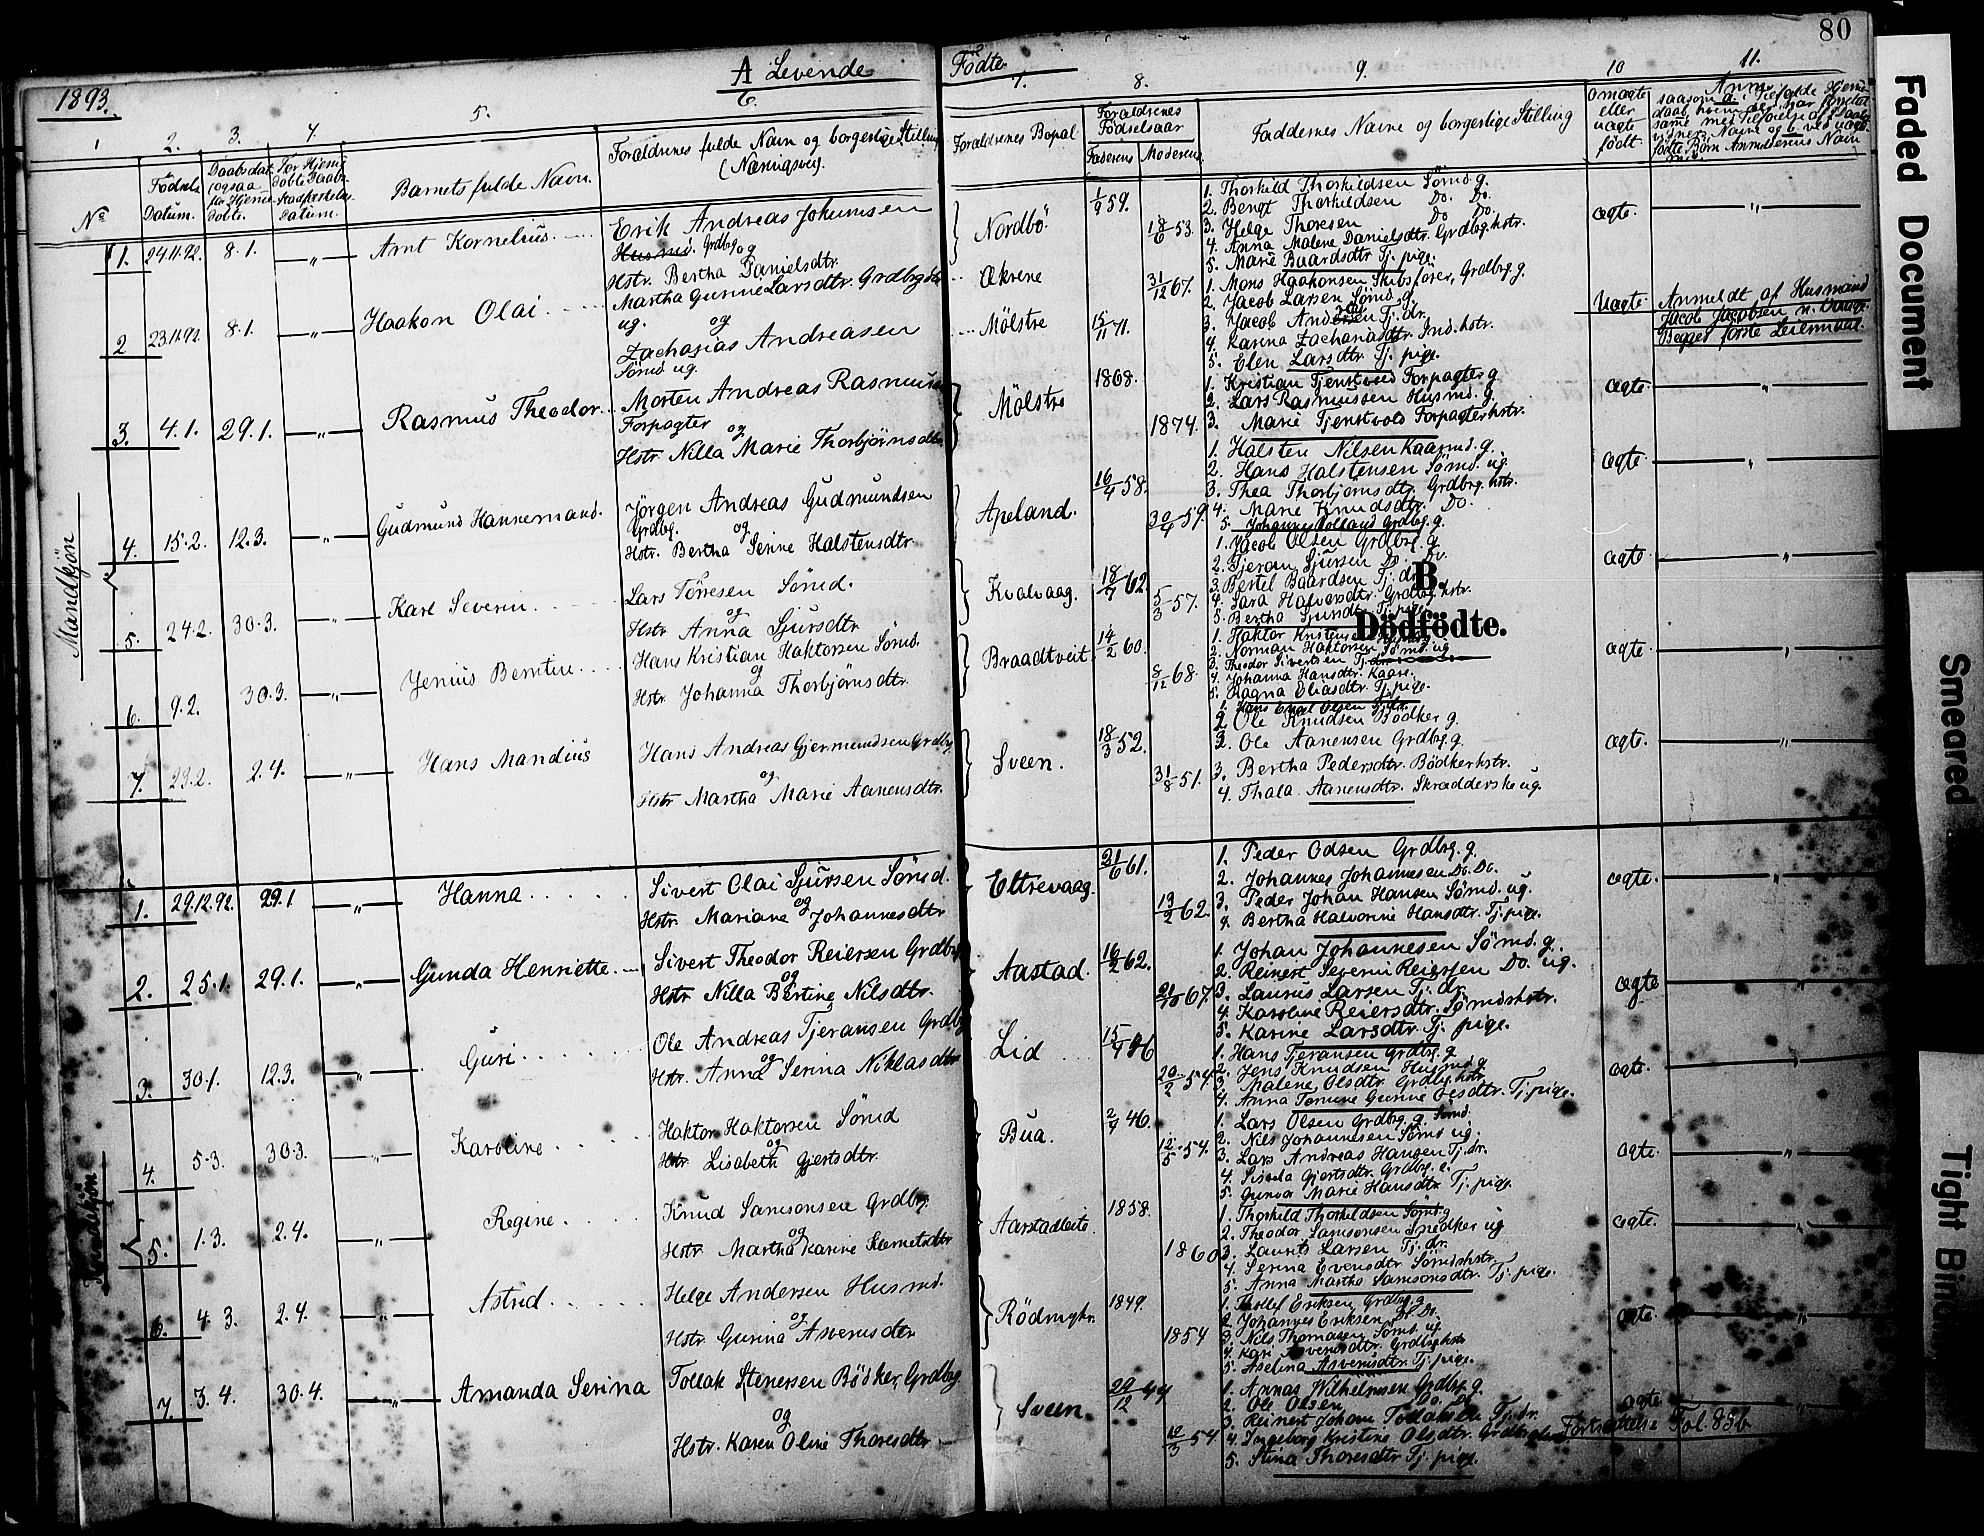 80
1893.
A Levende Födte
1 2. 3. 4. 5. 6. 7. 8. 9. 10 11.
No
Födsels Datum.
Daabsdat. ogsaa for Hjemmedöbte.
For Hjemmedöbte Daabs Stadfæstelses Datum.
Barnets fulde Navn.
Forældrenes fulde Navn og borgerlige Stilling (Næringsvei).
Forældrenes Bopæl
Forældrenes Födselsaar
Faderens Moderens
Faddernes Navne og borgerlige Stilling
Ægte eller uægte födt.
Anm.
Mandkjön
1. 24.11.92. 8.1. — " — Arnt Kornelius.
Erik Andreas Johannesen
Husmd. Grdbrg og
Hstr. Bertha Danielsdtr.
Nordbö 1/9 59. 18/6 53.
1. Thorkild Thorkildsen Sömd. g.
2. Bengt Thorkildsen Do. Do.
3. Helge Thoresen Do Do.
4. Anna Malene Danielsdtr. Grdbrg.hstr.
5. Marie Baardsdtr Tj. pige.
ægte. — " —
2 23.11.92 8.1. — " — Haakon Olai
Martha Gurine Larsdtr. Grdbrgdtr
ug. og
Zacharias Andreasen
Sömd ug.
Økrene 31/12 67.
Mölstre 15/11 71.
1. Mons Haakonsen Skibsförer, Grdbrg. g.
2. Jacob Larsen Sömd. g.
3. Jacob Andersen Tj. dr.
4. Karina Zachariasdtr. Ind.hstr.
5. Elen Larsdtr. Tj. pige.
Uægte Anmeldt af Husmand
Jacob Jacobsen
Begges förste Leiermaal.
3. 4.1. 29.1. — " — Rasmus Theodor
Morten Andreas Rasmussen
Forpagter og
Hstr. Nilla Marie Thorbjörnsdtr.
Mölstre 1868. 1874.
1. Kristian Tjenstvold Forpagter g
2. Lars Rasmussen Husmd. g.
3. Marie Tjenstvold Forpagterhstr.
ægte. — " —
4. 15.2. 12.3. — " — Gudmund Hannemand.
Jörgen Andreas Gudmundsen
Grdbg. og
Hstr. Bertha Serine Halstensdtr
Apeland. 16/4 58. 30/4 59.
1. Halsten Nilsen Kaarmd. g.
2. Hans Halstensen Sömd. ug.
3. Thea Thorbjörnsdtr. Grdbrg.hstr.
4. Marie Knudsdtr. Do.
5. Johannes Rolland Grdbrg. g.
ægte — " —
5. 24.2. 30.3. — " — Karl Severin
Lars Tönesen Sömd.
og
Hstr Anna Sjursdtr
Kvalvaag. 18/7 62 5/3 57.
1. Jacob Olsen Grdbrg. g.
2. Tjeran Sjursen Do. Do.
3. Bertel Baardsen Tj. dr.
4. Sara Halvorsdtr. Grdbrg.hstr.
5. Bertha Sjursdtr. Tj. pige.
ægte. — " —
B.
Dödfödte.
6. 9.2. 30.3. — " — Jenius Berntin
Hans Kristian Haktorsen Sömd.
og
Hstr Johanna Thorbjörnsdtr.
Braadtveit 14/2 60. 8/12 68.
1. Haktor Kristensen
2. Norman Haktorsen Sömd. ug
3. Theodor Sivertsen Tj. dr.
4. Johanna Hansdtr. Kaare.
5. Ragna Eliasdtr. Tj. pige.
ægte. — " —
7. 23.2. 2.4. — " — Hans Mandius
Hans Andreas Gjermundsen Grdbrg
og
Hstr Martha Marie Aanensdtr.
Sveen. 18/3 52. 31/8 51.
1. Hans Emil Olsen
2. Ole Knudsen Bödker g.
3. Ole Aanensen Grdbrg. g.
3. Bertha Pedersdtr. Bödkerhstr.
4. Thala Aanensdtr. Skrædderske ug.
ægte. — " —
Kvindekjön
1. 29.12.92. 29.1 — " — Hanna
Sivert Olai Sjursen Sömd.
og
Hstr Mariane Johannesdtr
Eltrevaag. 21/6 61. 19/2 62.
1. Peder Odsen Grdbrg. g.
2. Johannes Johannesen Do. Do.
3. Peder Johan Hansen Sömd. ug.
4. Bertha Halvorine Hansdtr. Tj. pige.
ægte. — " —
2. 25.1. 29.1. — " — Gunda Henriette
Sivert Theodor Reiersen Grdbrg
og
Hstr Nilla Bertine Nilsdtr.
Aastad. 16/2 62. 21/10 67.
1. Johan Johannesen Sömd. g.
2. Reinert Severin Reiersen Do. ug.
3. Laurits Larsen Tj. dr.
4. Karoline Reiersdtr. Sömdshstr.
5. Karine Larsdtr. Tj. pige.
ægte — " —
3. 30.1. 12.3. — " — Guri
Ole Andreas Tjeransen Grdbg
og
Hstr. Anna Serina Niklasdtr
Lid 15/4 46 20/2 54.
1. Hans Tjeransen Grdbrg. g
2. Jens Knudsen Husmd. g
3. Malene Olsdtr. Grdbrg.hstr.
4. Anna Tomine Gurine Olsdtr. Tj. pige.
ægte. — " —
4. 5.3. 30.3. — " — Karoline
Haktor Haktorsen Sömd
og
Hstr Lisabeth Gjertsdtr.
Bua. 2/4 46. 12/5 54.
1. Lars Olsen Grdbrg. g. Sömd.
2. Nils Johannesen Sömd ug.
3. Lars Andreas Hansen Tj. dr.
4. Siselia Gjertsdtr. Grdbrg. e.
5. Gunva Marie Hansdtr. Tj. pige.
ægte. — " —
5. 1.3. 2.4. — " — Regine.
Knud Samsonsen Grdbrg.
og
Hstr. Martha Karine Klemetsdtr
Aarstadleite 1858. 1860
1. Thorkild Thorkildsen Sömd. g
2. Theodor Samsonsen Snedker ug
3. Laurits Larsen Tj. dr.
4. Serina Evensdtr. Sömdshstr.
5. Anna Martha Samsonsdtr. Tj. pige.
ægte. — " —
6. 4.3. 2.4. — " — Astrid
Helge Andersen Husmd.
og
Hstr Gurina Asvensdtr
Rödmyhr. 1849. 1854
1. Thollef Eriksen Grdbrg. g
2. Johannes Eriksen Do Do.
3. Nils Thomasen Sömd. ug.
4. Kari Asvensdtr. Grdbrghstr
5. Aselina Asvensdtr. Tj. pige.
ægte. — " —
7. 3.4. 30.4. — " — Amanda Serina
Tollak Stenersen Bödker, Grdbrg
og
Hstr. Karen Oline Thoresdtr
Sveen 29/12 44 10/3 54
1. Annas Wilhelmsen Grdbrg. g.
2. Ole Olsen Do. Do.
3. Reinert Johan Tollaksen Tj. dr.
4. Ingeborg Kristine Olsdtr. Grdbrghstr
5. Stina Thoresdtr Tj. pige.
ægte — " —
Fortsættelse Fol. 83b
Faded Document
Smeared
Tight Bind